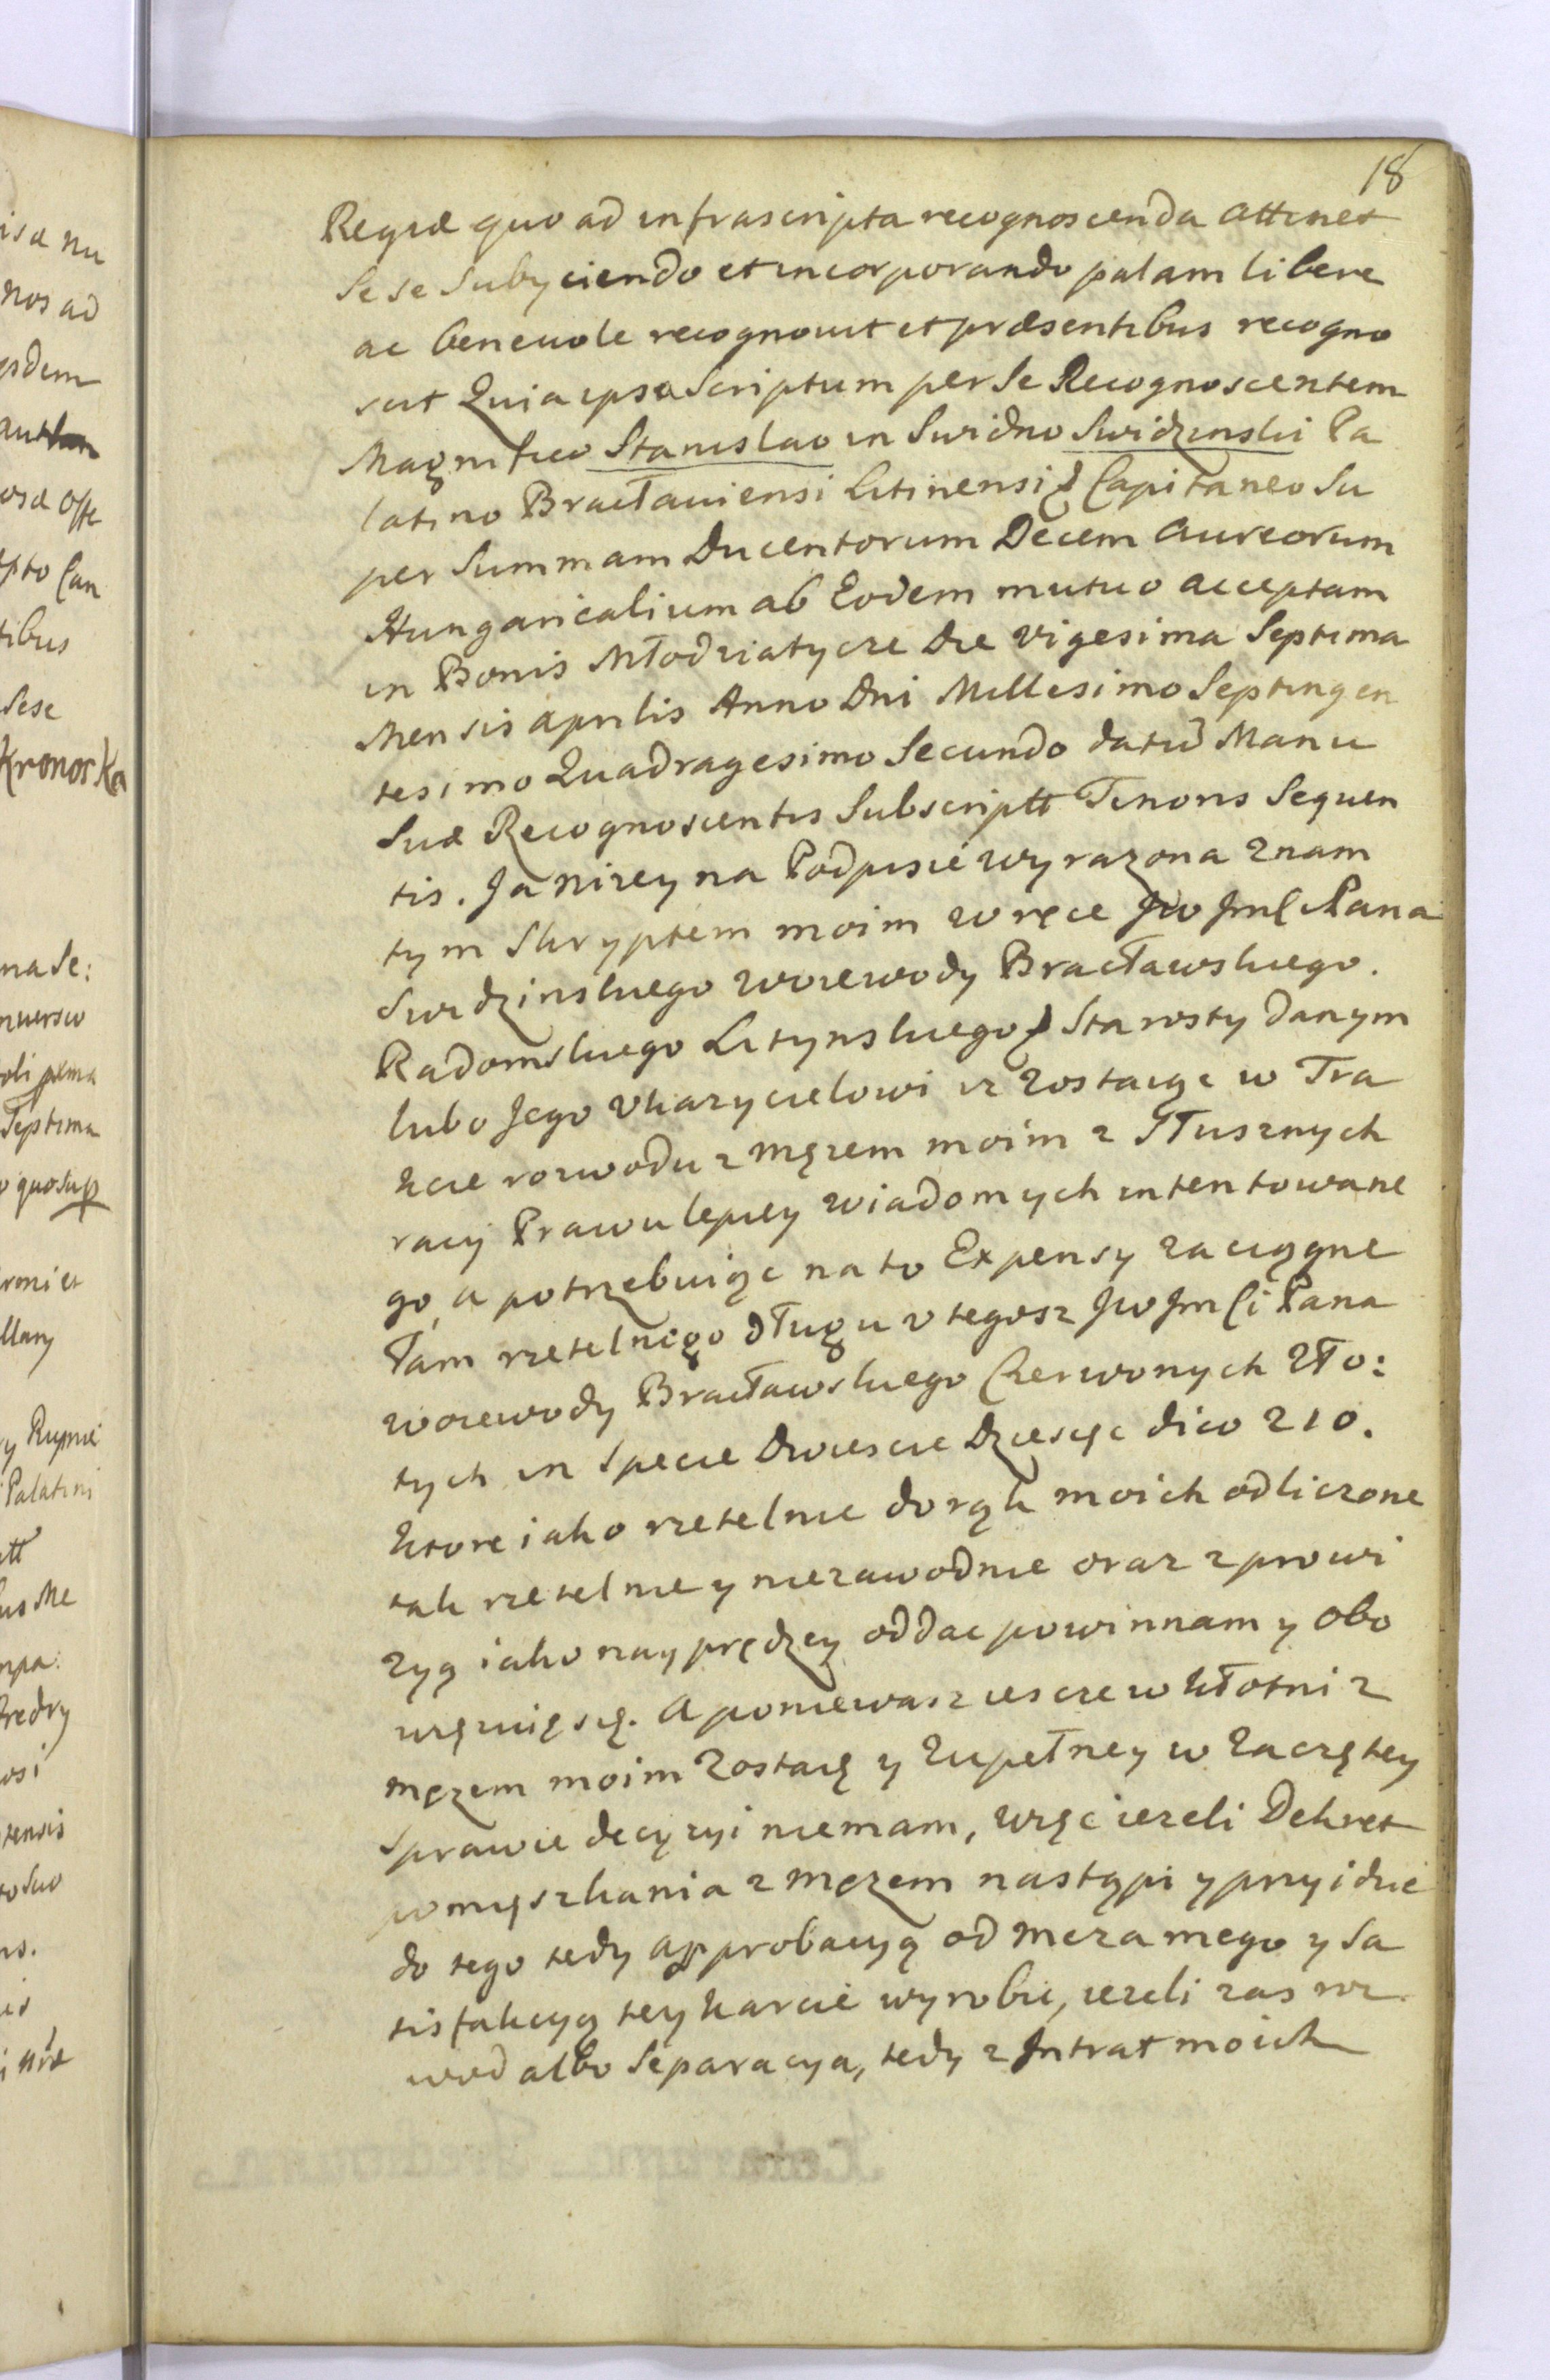 18
Regiæ quo ad infrascripta recognoscenda attinet
Se se Subyciendo et incorporando palam libere
ac beneuole recognouit et præsentibus recogno
scit Quia ipsa Scriptum per Se Recognoscentem
Magnifico Stanislao in Swidno Swidzinski Pa
latino Bracławiensi Litinensi & Capitaneo Su
per Summam Ducentorum Decem Aureorum
Hungaricalium ab Eodem mutuo acceptam
in Bonis Młodziatycze Die Vigesima Septima
Mensis Aprilis Anno Dni Millesimo Septingen
tesimo Quadragesimo Secundo datu Manu
Sua Recognoscentis Subscriptt Tenoris Sequen
tis. Ja nizey na Podpisie wyrazona znam
tym Skryptem moim w ręce Jw Jmć Pana
Swidzinskiego woiewody Bracławskiego.
Radomskiego Litynskiego & Starosty danym
lubo Jego Vkazycielowi iz zostaiąc w Tra
kcie rozwodu z mężem moim z Słusznych
racyi Prawu lepiey wiadomych intentowane
go, a potrzebuiąc na to Expensy zaciągne
łam rzetelnego długu v tegosz Jw Jmći Pana
woiewody Bracławskiego Czerwonych Zło:
tych in Specie Dwiescie Dziesięc dico 210.
ktore iako rzetelnie do rąk moich odliczone
tak rzetelnie y niezawodnie oraz z prowi
zyą iako nayprędzey oddac powinnam y obo
więzuię się. A poniewasz iescze w kłotni z
męzem moim zostaię y zupełney w zaczętey
Sprawie decyzyi niemam, więc iezeli Dekret
pomięszkania z męzem nastąpi y przyidzie
do tego tedy approbacyą od meza mego y Sa
tisfakcyą tey karcie wyrobie, iezeli zas roz
wod albo Separacya, tedy z Intrat moich